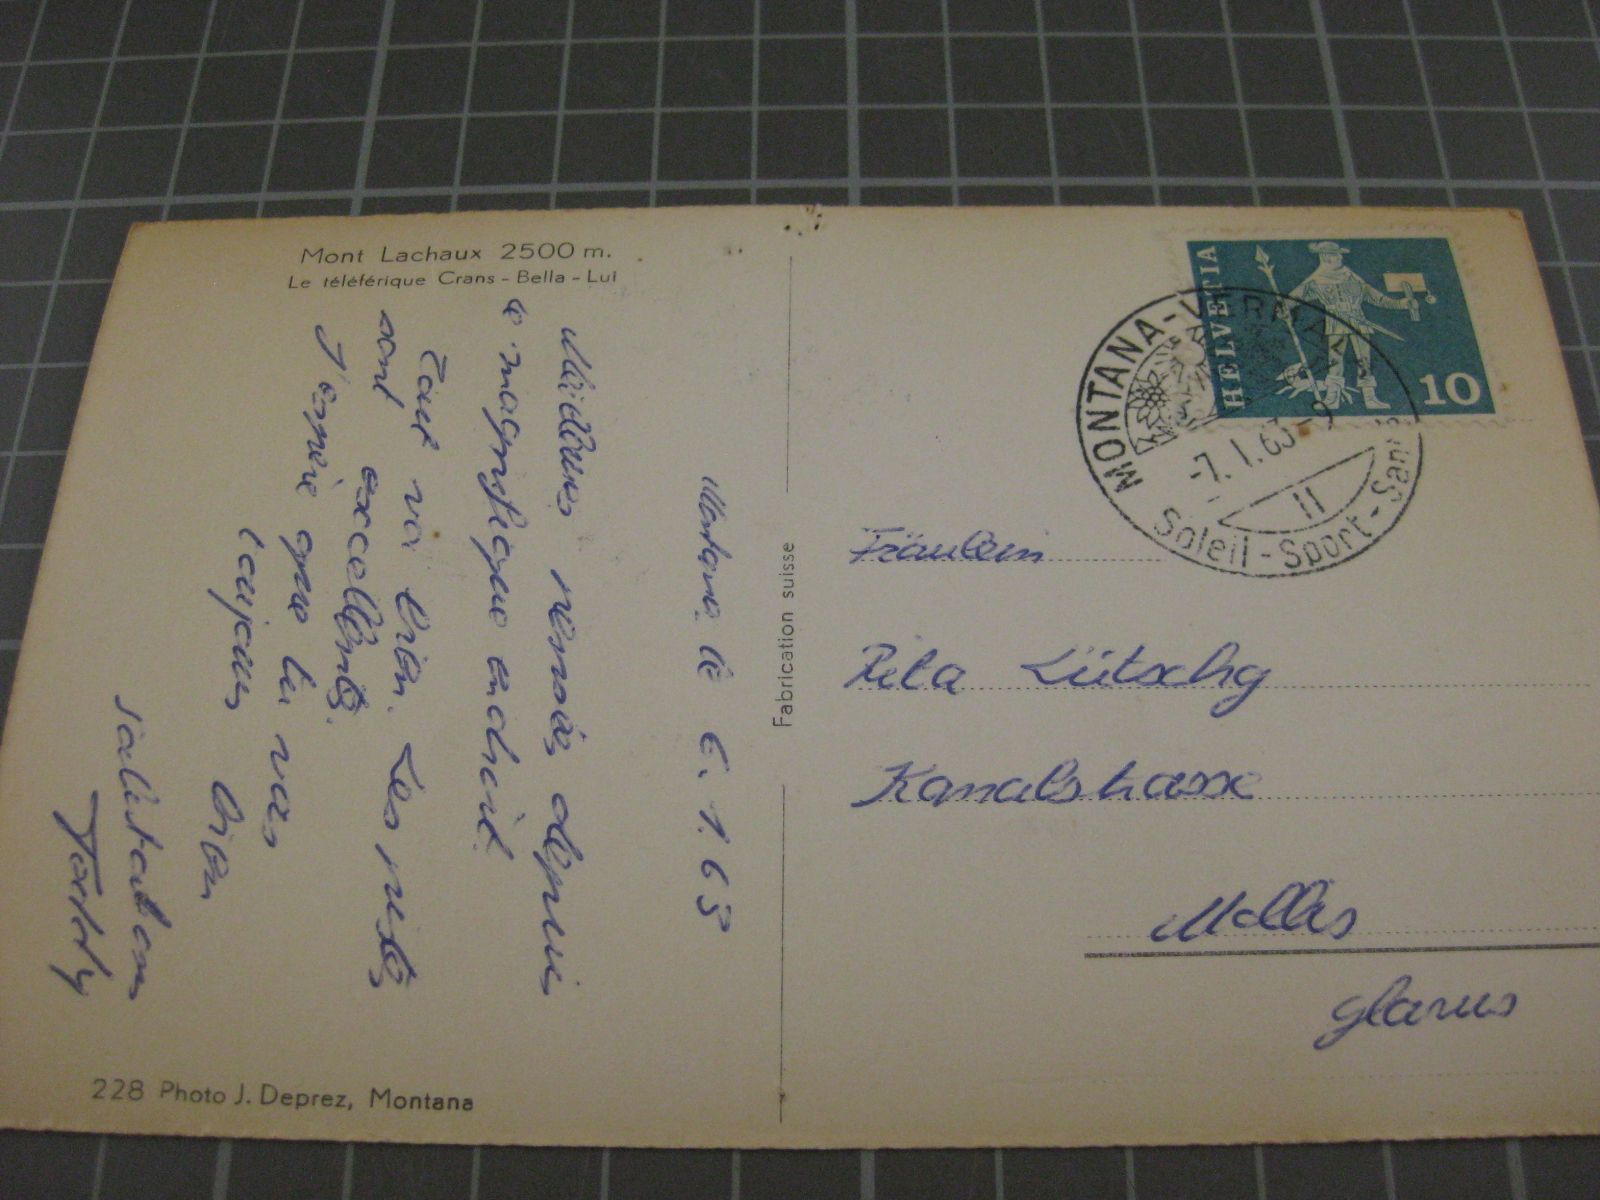 Mont Lachaux 2500 m.
Le téléférique Crans - Bella - Lui
Montana le 6.1.63
Meilleures pensées depuis
ce magnifique endroit.
Tout va bien. Les pistes
sont excellentes.
J'espère que tu vas
toujours bien
salutations
228 Photo J. Deprez, Montana
Fabrication suisse
HELVETIA
10
MONTANA-VERMALA
-7.1.63-9
II
Soleil-Sport-Santé
Fräulein
Rita Lütschg
Kanalstrasse
Mollis
Glarus